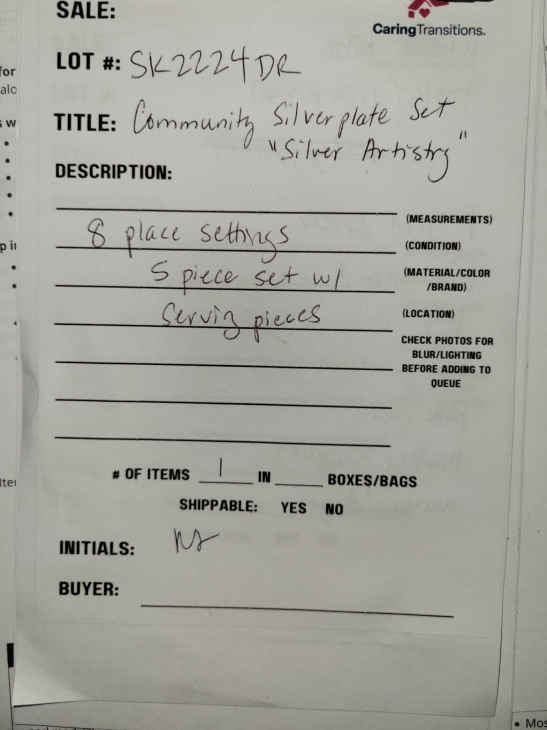 SALE:
CaringTransitions.
LOT #: SK2224DR
TITLE: Community Silverplate Set
"Silver Artistry"
DESCRIPTION:
(MEASUREMENTS)
8 place settings
(CONDITION)
5 piece set w/
(MATERIAL/COLOR
/BRAND)
Serving pieces
(LOCATION)
CHECK PHOTOS FOR
BLUR/LIGHTING
BEFORE ADDING TO
QUEUE
# OF ITEMS 1 IN BOXES/BAGS
SHIPPABLE: YES NO
INITIALS:
BUYER: